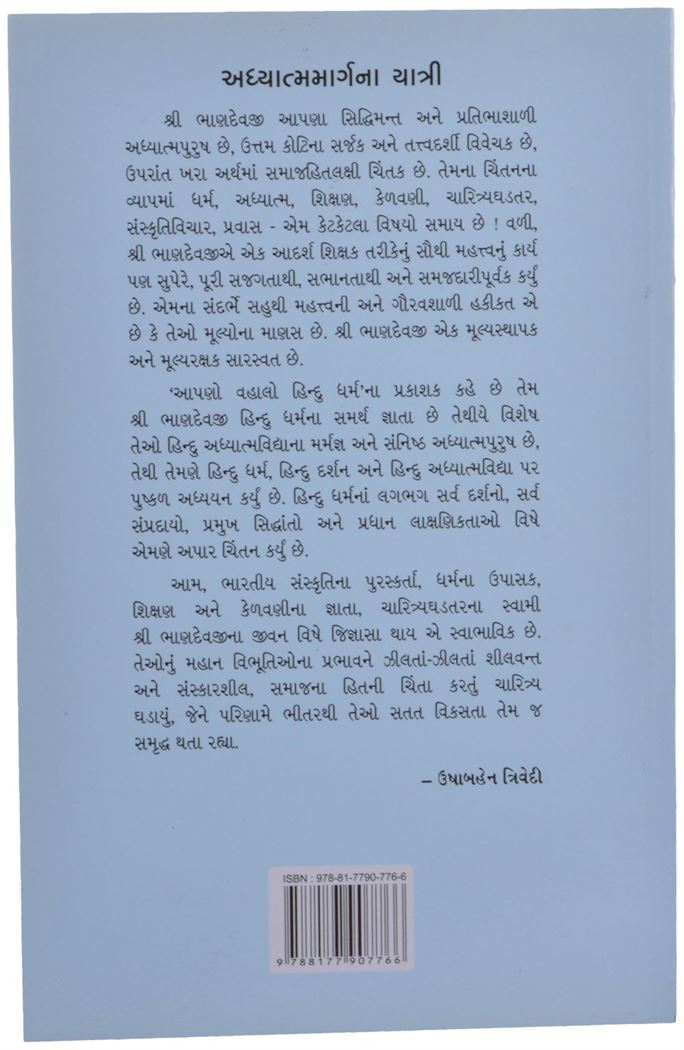 અધ્યાત્મમાર્ગના યાત્રી
શ્રી ભાણદેવજી આપણા સિદ્ધિમન્ત અને પ્રતિભાશાળી
અધ્યાત્મપુરુષ છે, ઉત્તમ કોટિના સર્જક અને તત્ત્વદર્શી વિવેચક છે,
ઉપરાંત ખરા અર્થમાં સમાજહિતલક્ષી ચિંતક છે. તેમના ચિંતનના
વ્યાપમાં ધર્મ, અધ્યાત્મ, શિક્ષણ, કેળવણી, ચારિત્ર્યઘડતર,
સંસ્કૃતિવિચાર, પ્રવાસ - એમ કેટકેટલા વિષયો સમાય છે ! વળી,
શ્રી ભાણદેવજીએ એક આદર્શ શિક્ષક તરીકેનું સૌથી મહત્ત્વનું કાર્ય
પણ સુપેરે, પૂરી સજગતાથી, સભાનતાથી અને સમજદારીપૂર્વક કર્યું
છે. એમના સંદર્ભે સહુથી મહત્ત્વની અને ગૌરવશાળી હકીકત એ
છે કે તેઓ મૂલ્યોના માણસ છે. શ્રી ભાણદેવજી એક મૂલ્યસ્થાપક
અને મૂલ્યરક્ષક સારસ્વત છે.
‘આપણો વહાલો હિન્દુ ધર્મ’ના પ્રકાશક કહે છે તેમ
શ્રી ભાણદેવજી હિન્દુ ધર્મના સમર્થ જ્ઞાતા છે તેથીયે વિશેષ
તેઓ હિન્દુ અધ્યાત્મવિદ્યાના મર્મજ્ઞ અને સંનિષ્ઠ અધ્યાત્મપુરુષ છે,
તેથી તેમણે હિન્દુ ધર્મ, હિન્દુ દર્શન અને હિન્દુ અધ્યાત્મવિદ્યા પર
પુષ્કળ અધ્યયન કર્યું છે. હિન્દુ ધર્મનાં લગભગ સર્વ દર્શનો, સર્વ
સંપ્રદાયો, પ્રમુખ સિદ્ધાંતો અને પ્રધાન લાક્ષણિકતાઓ વિષે
એમણે અપાર ચિંતન કર્યું છે.
આમ, ભારતીય સંસ્કૃતિના પુરસ્કર્તા, ધર્મના ઉપાસક,
શિક્ષણ અને કેળવણીના જ્ઞાતા, ચારિત્ર્યઘડતરના સ્વામી
શ્રી ભાણદેવજીના જીવન વિષે જિજ્ઞાસા થાય એ સ્વાભાવિક છે.
તેઓનું મહાન વિભૂતિઓના પ્રભાવને ઝીલતાં-ઝીલતાં શીલવન્ત
અને સંસ્કારશીલ, સમાજના હિતની ચિંતા કરતું ચારિત્ર્ય
ઘડાયું, જેને પરિણામે ભીતરથી તેઓ સતત વિકસતા તેમ જ
સમૃદ્ધ થતા રહ્યા.
– ઉષાબહેન ત્રિવેદી
ISBN : 978-81-7790-776-6
9 788177 907766